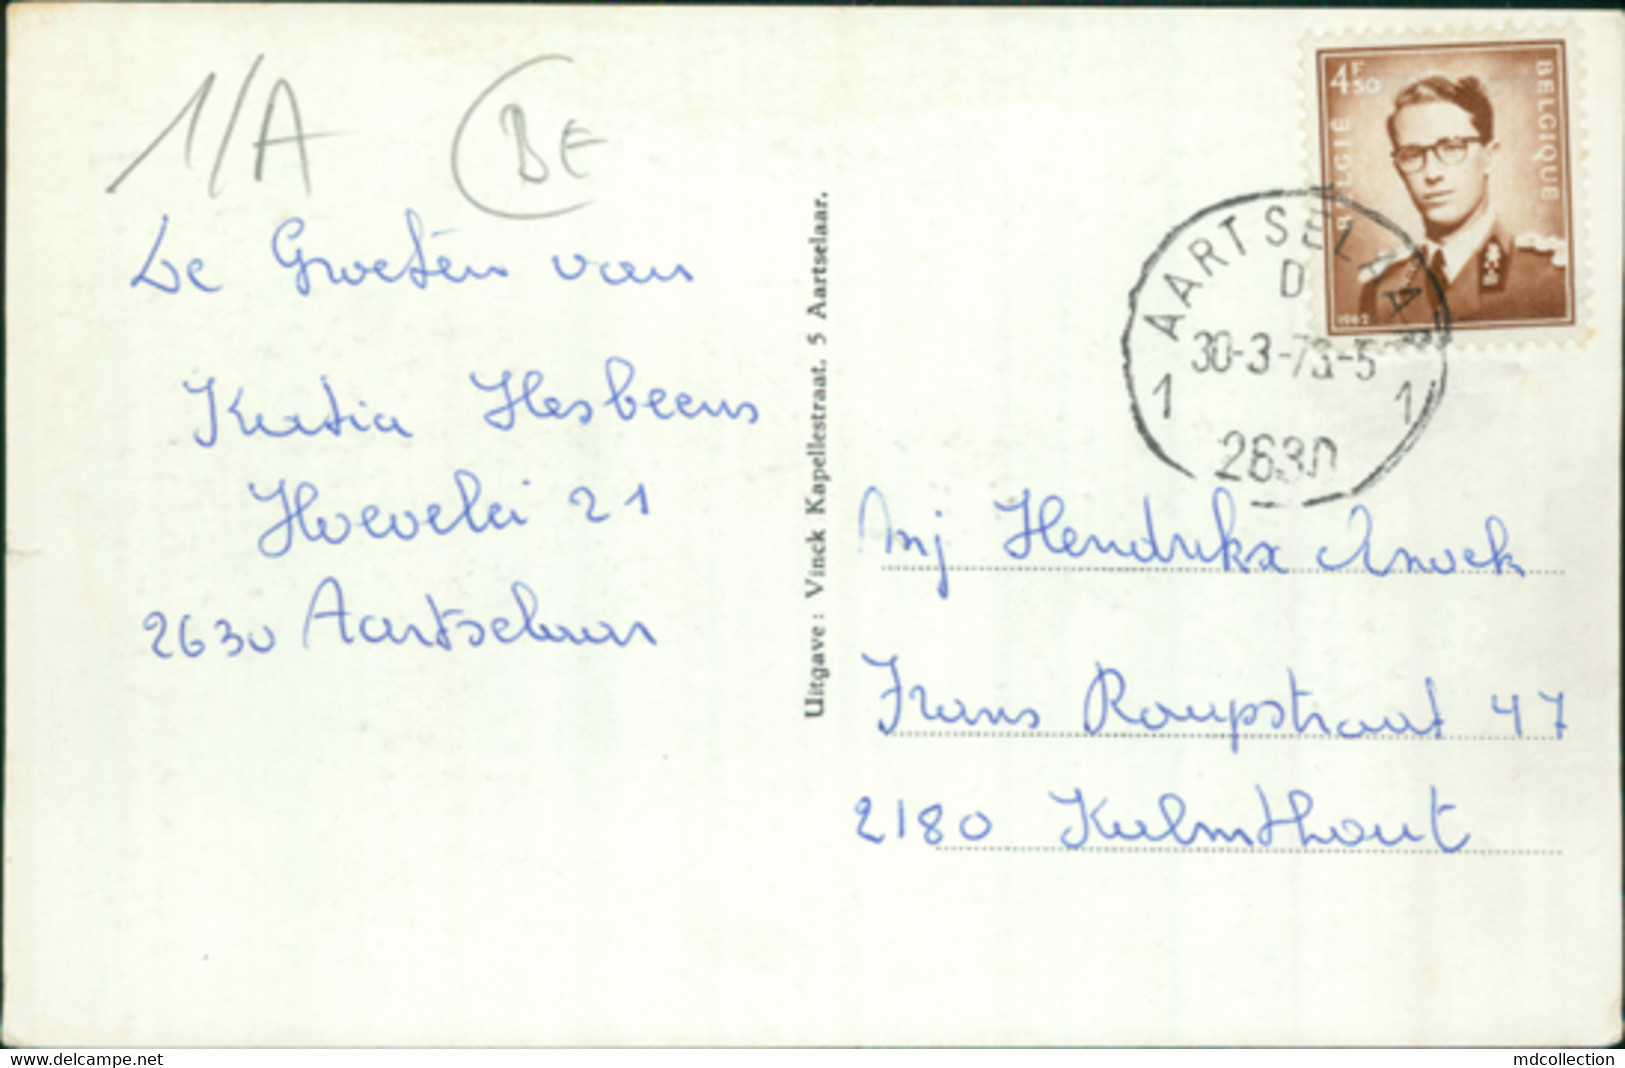 1/A BE
De Groeten van
Katia Hesbeens
Hoevelei 21
2630 Aartselaar
Uitgave : Vinck Kapellestraat, 5 Aartselaar.
4F50
BELGIE
BELGIQUE
1962
AARTSELAAR
D
30-3-73-5
1 1
2630
Mej Hendrikx Anoek
Frans Raupstraat 47
2180 Kalmthout
www.delcampe.net
mdcollection